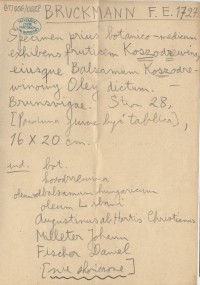 BRUCKMANN F. E. 1727
Specimen prius botanico-medicum
exhibens fruticem Koszodrewina,
eiusque Balsamum Koszodre-
winowy Oley dictum.
Brunsvigae. Str. 28,
[Powinna jeszcze być tablica],
16 x 20 cm.
ind: bot.
kosodrzewina
balsamum hungaricum
oleum Libani
Augustinus ab Hortis Christianus
Milleter Johann
Fischer Daniel
[nie obcięte]